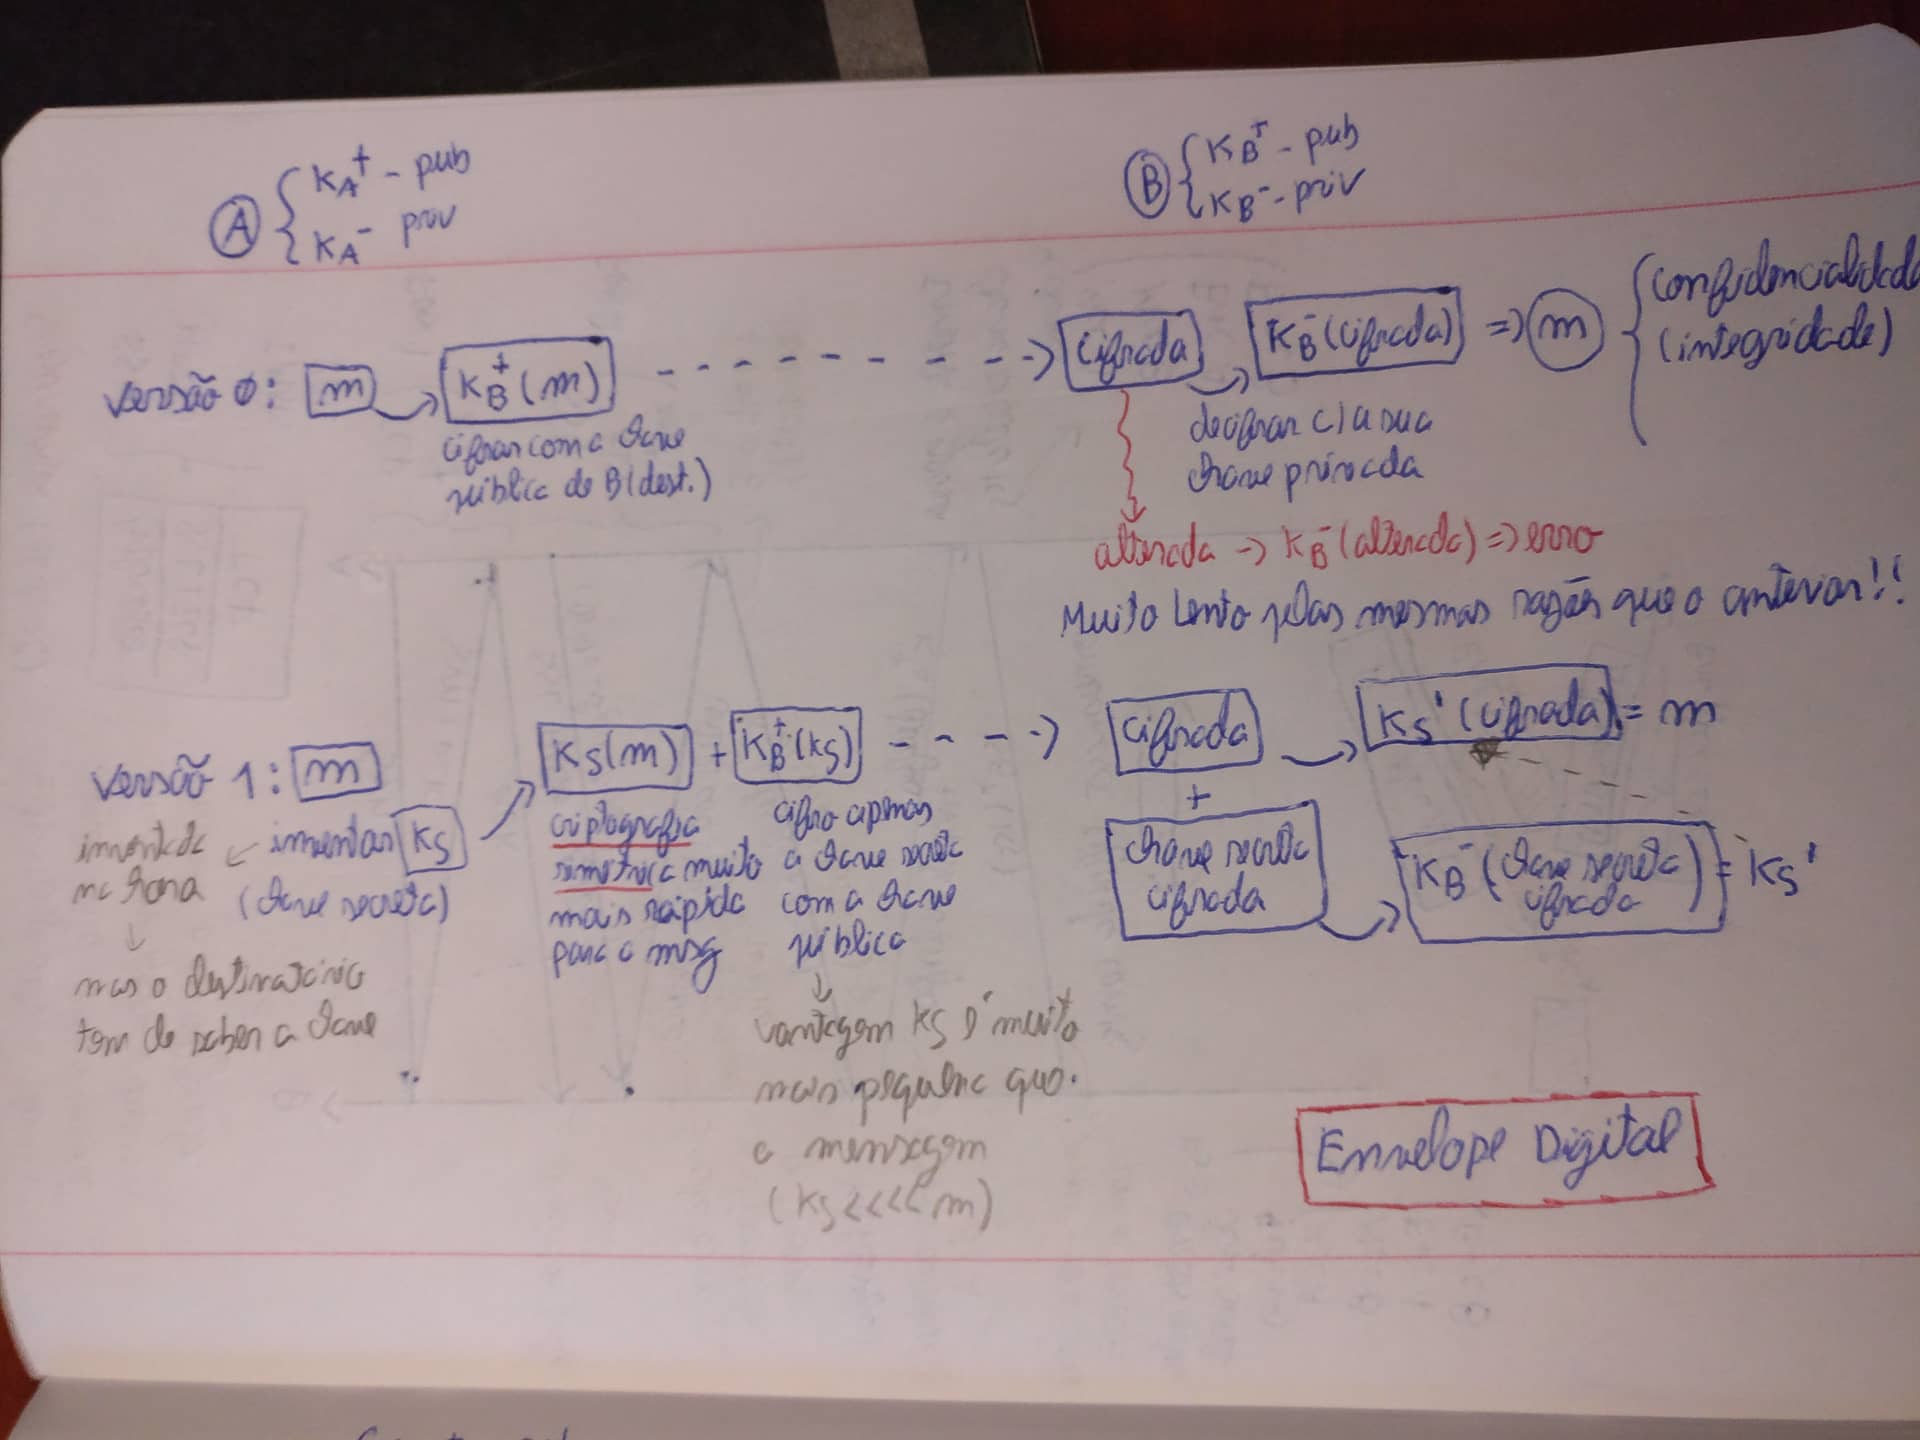 A { KA+ - pub
KA- priv
B { KB+ - pub
KB- - priv
versão 0: m → KB+(m) - - - - - - - - -> cifrada → KB-(cifrada) => m { confidencialidade
(integridade)
cifrar com a chave
pública de B (dest.)
decifrar c/ a sua
chave privada
alterada -> KB-(alterada) => erro
Muito lento pelas mesmas razões que o anterior!!
versão 1: m
inventar KS
(chave secreta)
inventada
na hora
mas o destinatário
tem de saber a chave
KS(m) + KB+(KS) - - - ->
criptografia
simétrica muito
mais rápida
para a msg
cifro apenas
a chave secreta
com a chave
pública
vantagem KS é muito
mais pequena que
a mensagem
(KS <<<< m)
cifrada → KS'(cifrada) = m
+
chave secreta
cifrada
KB-(chave secreta
cifrada) = KS'
Envelope Digital